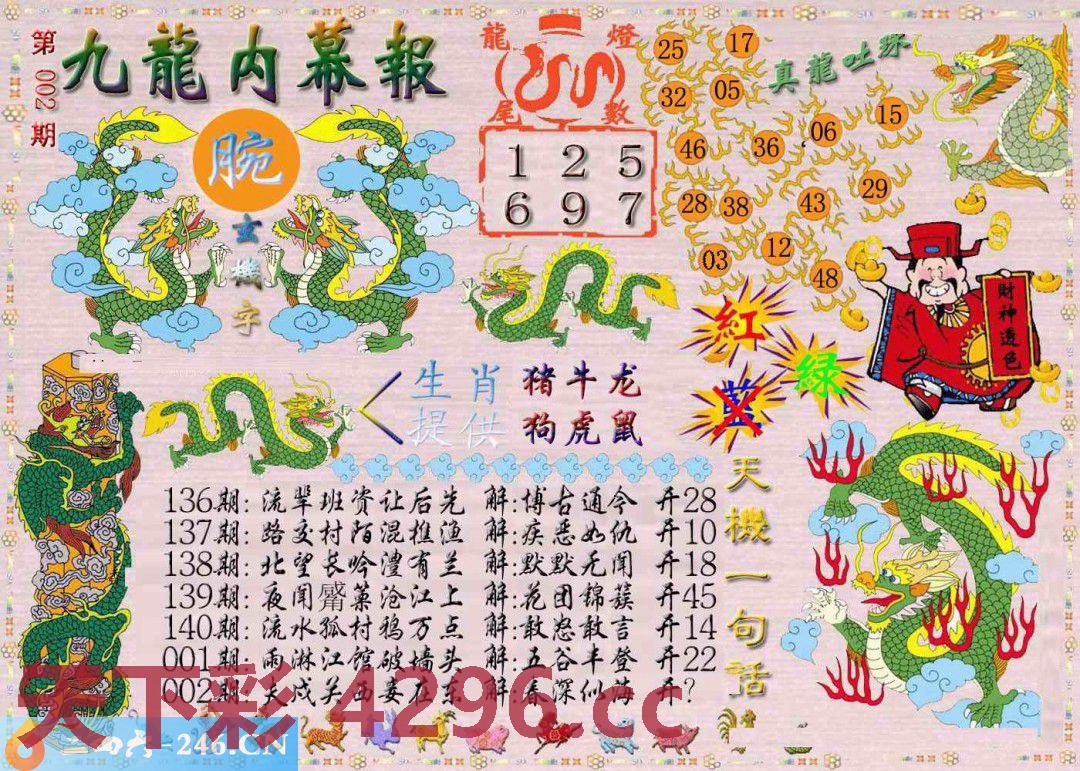 第002期
九龍内幕報
腕
玄機字
龍燈
尾數
1 2 5
6 9 7
真龍吐珠
25 17
32 05
46 36 06 15
28 38 43 29
03 12 48
財神透色
紅
綠
藍
生肖 猪牛龙
提供 狗虎鼠
天機一句話
136期: 流辈班资让后先 解:博古通今 开28
137期: 路交村陌混樵渔 解:疾恶如仇 开10
138期: 北望长吟澧有兰 解:默默无闻 开18
139期: 夜闻觱篥沧江上 解:花团锦簇 开45
140期: 流水孤村鸦万点 解:敢怒敢言 开14
001期: 雨淋江馆破墙头 解:五谷丰登 开22
002期: 夫戍关西妾在东 解:春深似海 开?
天下彩 4296.cc
246.CN